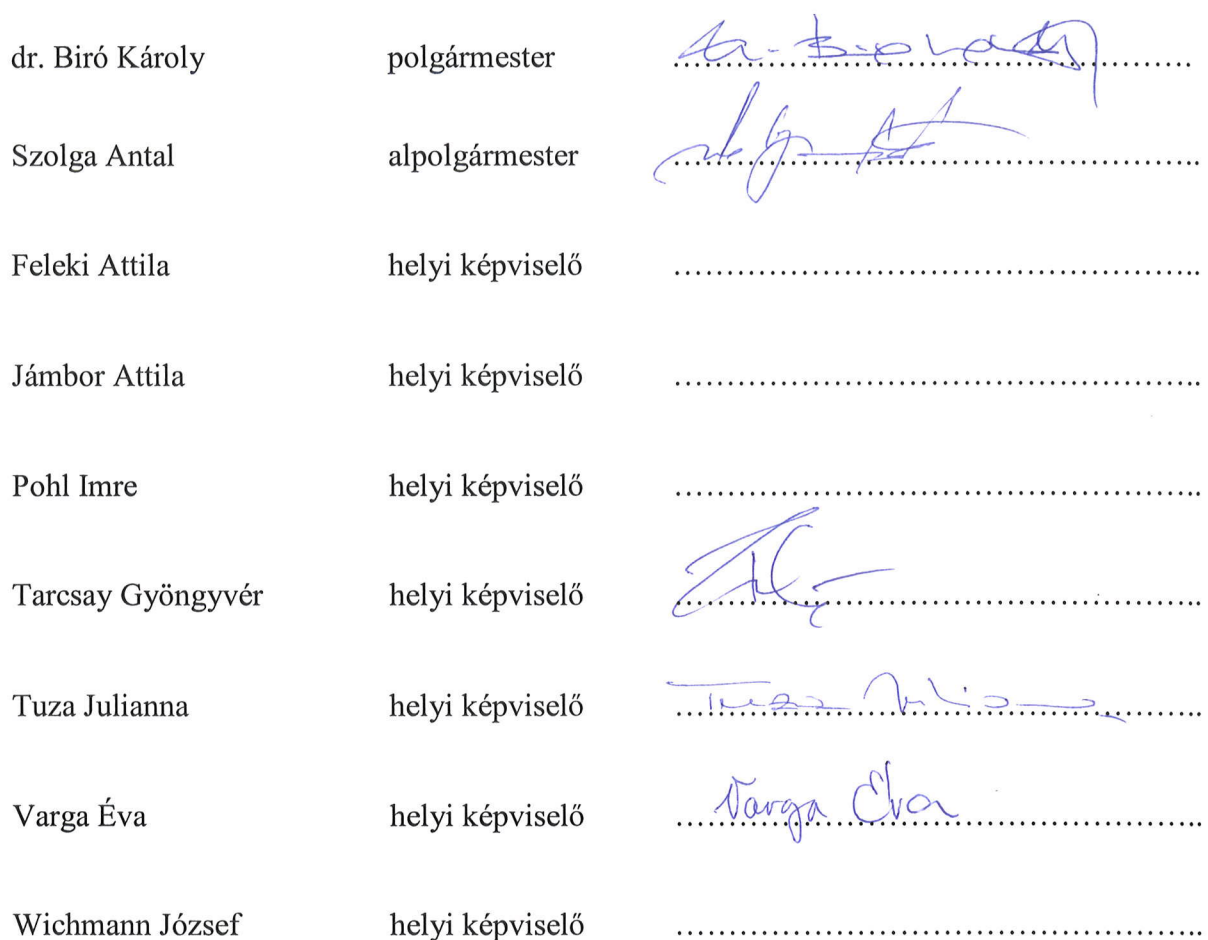 dr. Biró Károly polgármester ....................................................
Szolga Antal alpolgármester ....................................................
Feleki Attila helyi képviselő ....................................................
Jámbor Attila helyi képviselő ....................................................
Pohl Imre helyi képviselő ....................................................
Tarcsay Gyöngyvér helyi képviselő ....................................................
Tuza Julianna helyi képviselő Tuza Julianna
Varga Éva helyi képviselő Varga Éva
Wichmann József helyi képviselő ....................................................